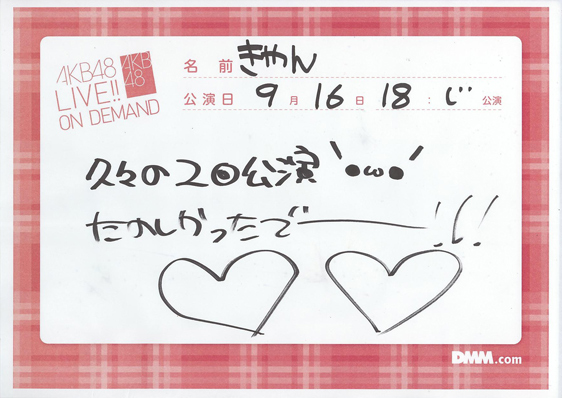 AKB48
LIVE!!
ON DEMAND
AKB
48
名前 きゃん
公演日 9月16日 18:じ 公演
久々の2回公演 '•ω•'
たのしかったでーーー!!!
DMM.com